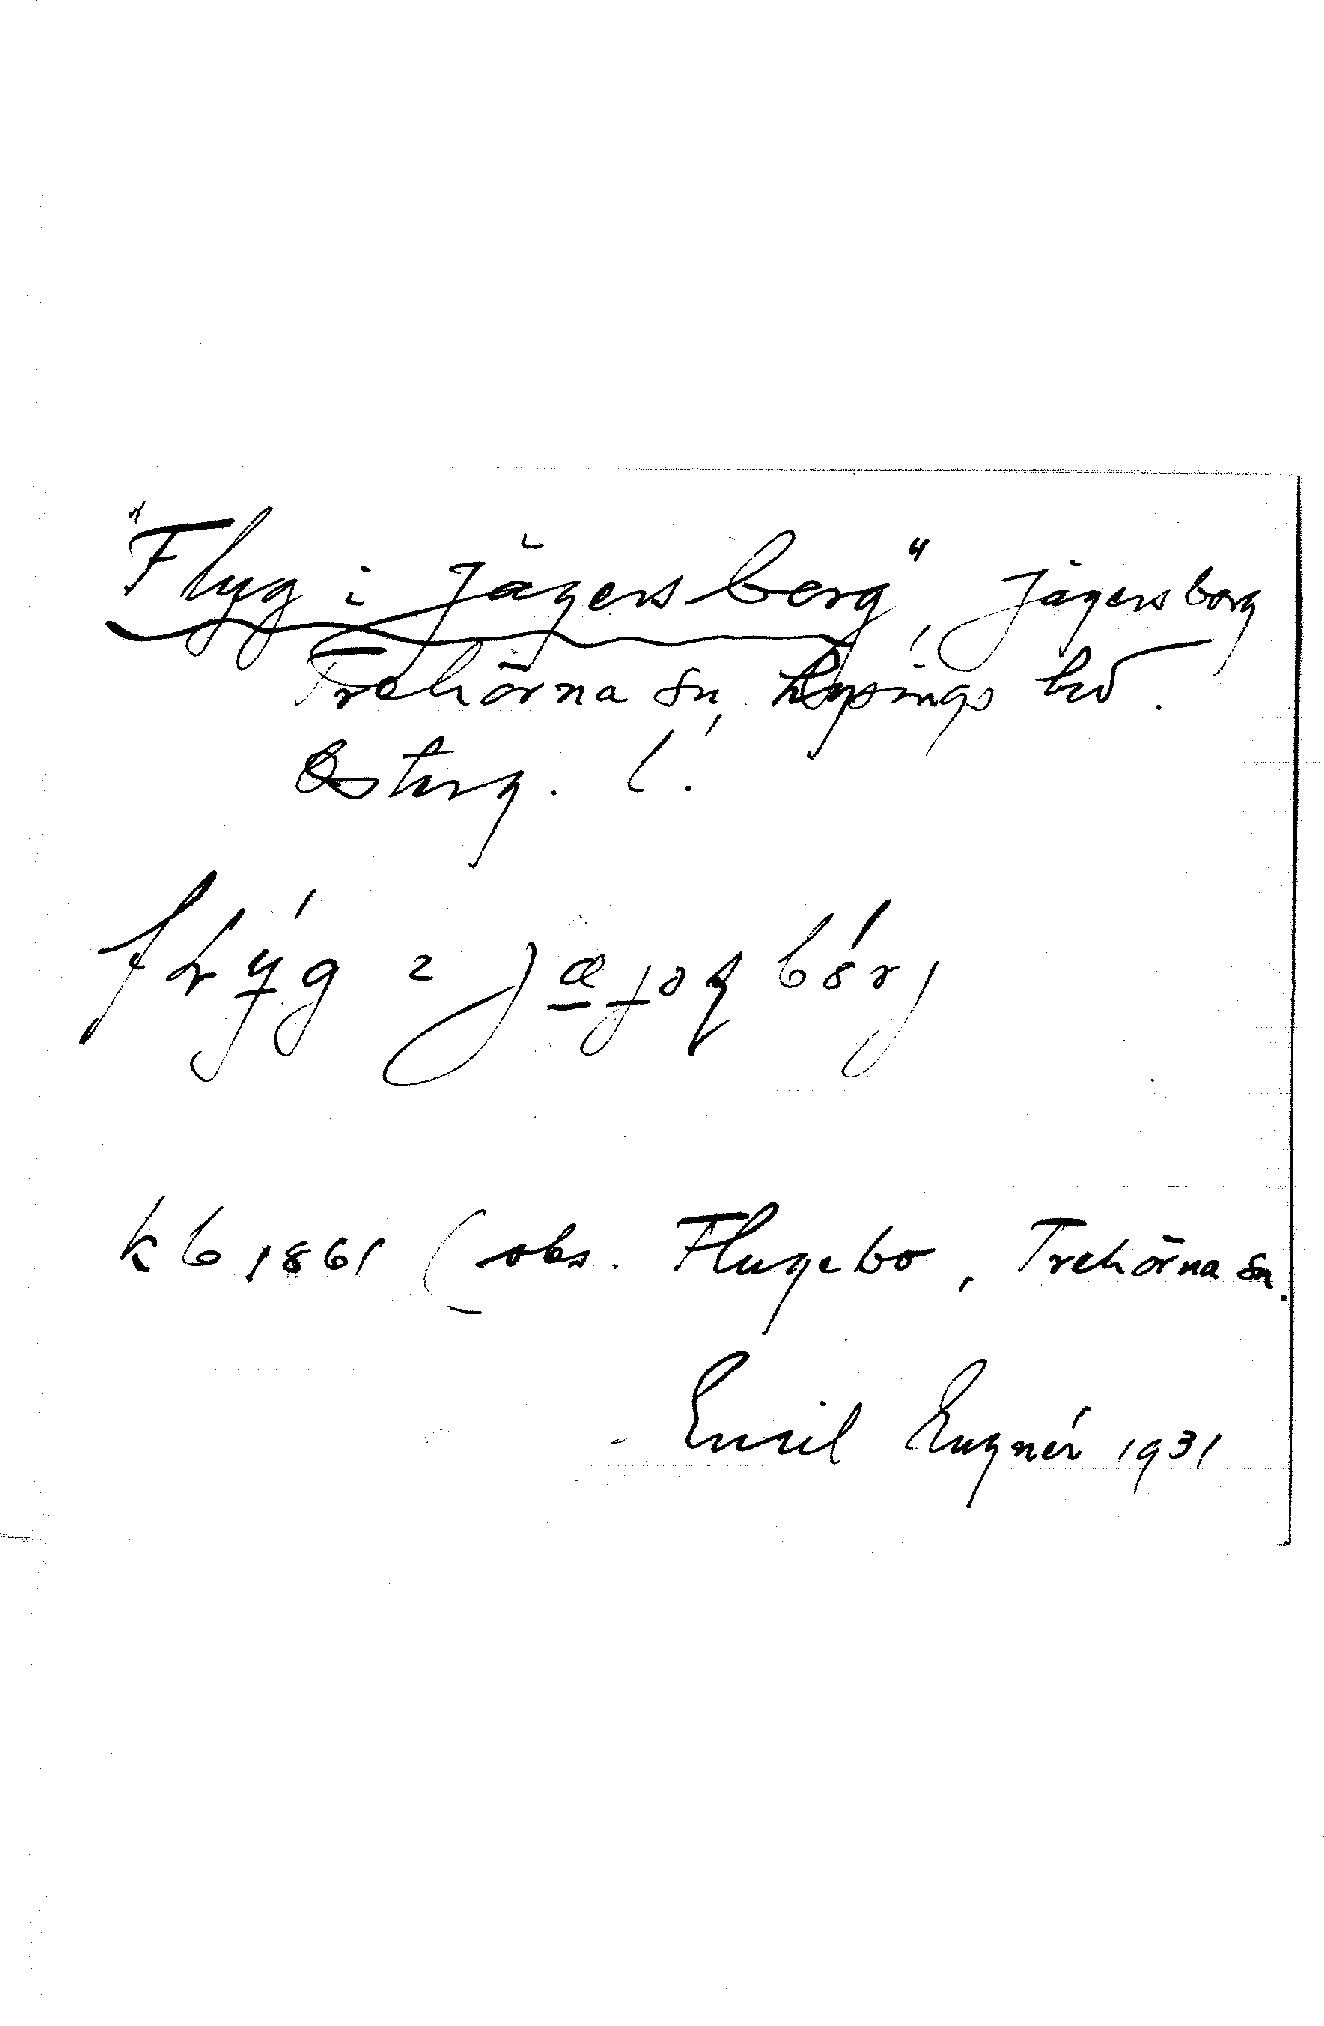 "Flyg i Jägersberg", Jägersberg
Trehörna sn, Lysings hd.
Österg. l.
kb 1861 (obs. Flugebo, Trehörna sn.
Emil Eugnér 1931